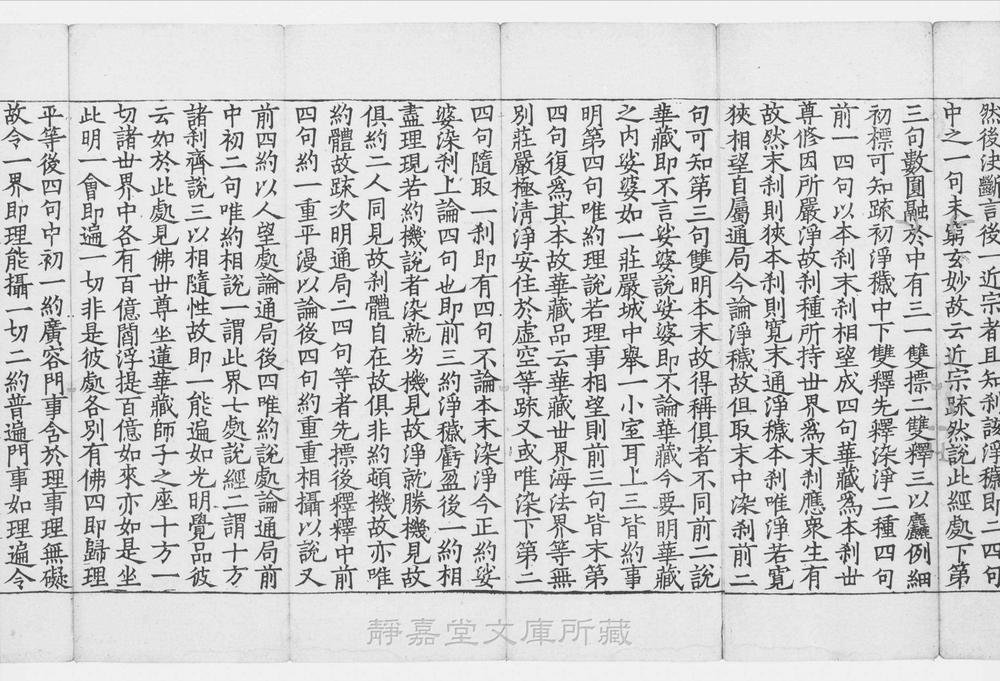 然後法斷言後一近宗者且知該淨穢即二四句
中之一句未窮玄妙故云近宗䟽然說此經處下第
三句數圓融於中有三一雙摽二雙釋三以麤例細
初摽可知䟽初淨穢中下雙釋先釋染淨二種四句
前一四句以本刹末刹相望成四句華藏爲本刹世
尊修因所嚴淨故刹種所持世界爲末刹應衆生有
故然末刹則狹本刹則寬末通淨穢本刹唯淨若寬
狹相望自屬通局今論淨穢故但取末中染刹前二
句可知第三句雙明本末故得稱俱者不同前二說
華藏即不言娑婆說娑婆即不論華藏今要明華藏
之内娑婆如一莊嚴城中舉一小室耳上三皆約事
明第四句唯約理說若理事相望則前三句皆末第
四句復爲其本故華藏品云華藏世界海法界等無
別莊嚴極清淨安住於虛空等䟽又或唯染下第二
四句隨取一刹即有四句不論本末染淨今正約娑
婆染刹上論四句也即前三約淨穢虧盈後一約相
盡理現若約機說者染就劣機見故淨就勝機見故
俱約二人同見故刹體自在故俱非約頓機故亦唯
約體故䟽次明通局二四句等者先摽後釋釋中前
四句約一重平漫以論後四句約重重相攝以說又
前四約以人望處論通局後四唯約說處論通局前
中初二句唯約相說一謂此界七處說經二謂十方
諸刹齊說三以相隨性故即一能遍如光明覺品彼
云如於此處見佛世尊坐蓮華藏師子之座十方一
切諸世界中各有百億閻浮提百億如來亦如是坐
此明一會即遍一切非是彼處各別有佛四即歸理
平等後四句中初一約廣容門事含於理事理無礙
故令一界即理能攝一切二約普遍門事如理遍令
靜嘉堂文庫所藏